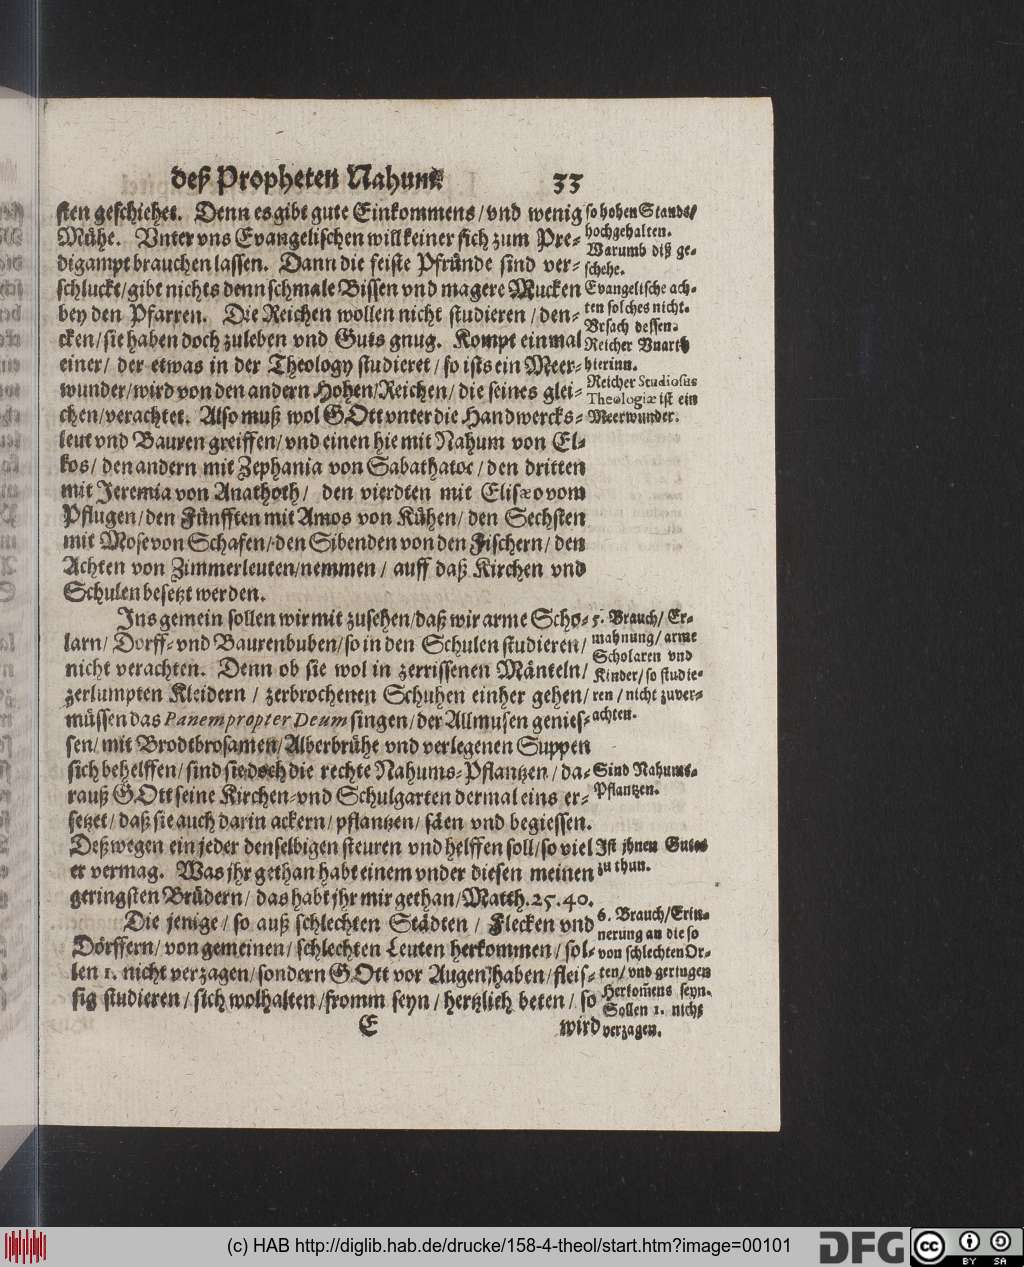 deß Propheten Nahum. 33
sten geschiehet. Denn es gibt gute Einkommens/ vnd wenig
Mühe. Vnter vns Evangelischen will keiner sich zum Pre-
digampt brauchen lassen. Dann die feiste Pfründe sind ver-
schluckt/ gibt nichts denn schmale Bissen vnd magere Mucken
bey den Pfarren. Die Reichen wollen nicht studieren / den-
cken/ sie haben doch zuleben vnd Guts gnug. Kompt einmal
einer/ der etwas in der Theology studieret/ so ists ein Meer-
wunder/ wird von den andern Hohen/ Reichen/ die seines glei-
chen/ verachtet. Also muß wol GOtt vnter die Handwercks-
leut vnd Bauren greiffen/ vnd einen hie mit Nahum von El-
kos/ den andern mit Zephania von Sabathatoc / den dritten
mit Jeremia von Anathoth/ den vierdten mit Elisæo vom
Pflugen/ den Fünfften mit Amos von Kühen/ den Sechsten
mit Mose von Schafen/ den Sibenden von den Fischern/ den
Achten von Zimmerleuten/ nemmen / auff daß Kirchen vnd
Schulen besetzt werden.
Ins gemein sollen wir mit zusehen/ daß wir arme Scho-
larn/ Dorff- vnd Baurenbuben/ so in den Schulen studieren/
nicht verachten. Denn ob sie wol in zerrissenen Mänteln/
zerlumpten Kleidern / zerbrochenen Schuhen einher gehen/
müssen das Panem propter Deum singen/ der Allmusen genies-
sen/ mit Brodtbrosamen/ Alberbrühe vnd verlegenen Suppen
sich behelffen/ sind sie doch die rechte Nahums-Pflantzen / da-
rauß GOtt seine Kirchen- vnd Schulgarten dermal eins er-
setzet/ daß sie auch darin ackern/ pflantzen/ säen vnd begiessen.
Deßwegen ein jeder denselbigen steuren vnd helffen soll/ so viel
er vermag. Was jhr gethan habt einem vnder diesen meinen
geringsten Brüdern/ das habt jhr mir gethan/ Matth. 25. 40.
Die jenige/ so auß schlechten Städten / Flecken vnd
Dörffern/ von gemeinen/ schlechten Leuten herkommen/ sol-
len 1. nicht verzagen/ sondern GOtt vor Augen haben/ fleis-
sig studieren / sich wolhalten/ fromm seyn / hertzlich beten / so
E wird
so hohen Stands/
hochgehalten.
Warumb diß ge-
schehe.
Evangelische ach-
ten solches nicht.
Vrsach dessen.
Reicher Vnart
hierinn.
Reicher Studiosus
Theologiæ ist ein
Meerwunder.
5. Brauch/ Er-
mahnung/ arme
Scholaren vnd
Kinder/ so studie-
ren / nicht zuver-
achten.
Sind Nahums-
Pflantzen.
Ist jhnen Gutes
zu thun.
6. Brauch/ Erin-
nerung an die so
von schlechten Or-
ten/ vnd geringen
Herkom̃ens seyn.
Sollen 1. nicht
verzagen.
(c) HAB http://diglib.hab.de/drucke/158-4-theol/start.htm?image=00101
DFG
cc BY SA